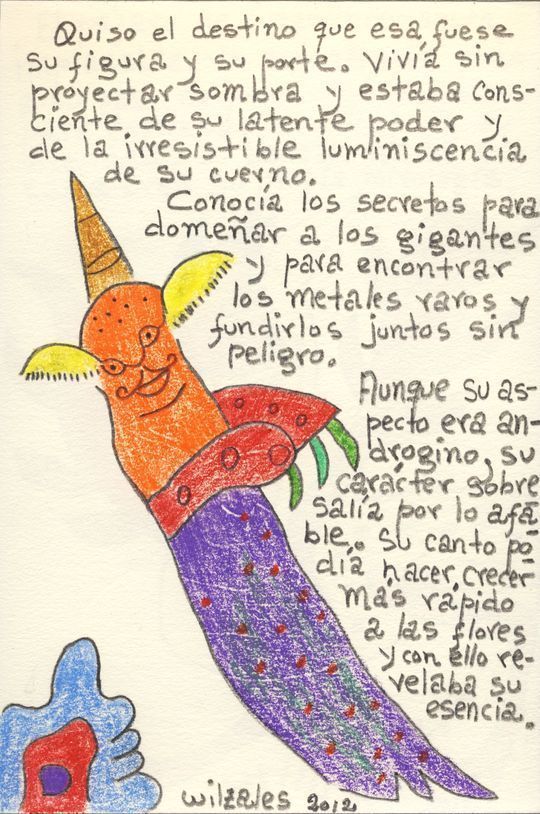 Quiso el destino que esa fuese
su figura y su porte. Vivía sin
proyectar sombra y estaba cons-
ciente de su latente poder y
de la irresistible luminiscencia
de su cuerno.
Conocía los secretos para
domeñar a los gigantes
y para encontrar
los metales raros y
fundirlos juntos sin
peligro.
Aunque su as-
pecto era an-
drogino, su
carácter sobre
salía por lo afa-
ble. Su canto po-
día hacer crecer
más rápido
a las flores
y con ello re-
velaba su
esencia.
wilzales 2012